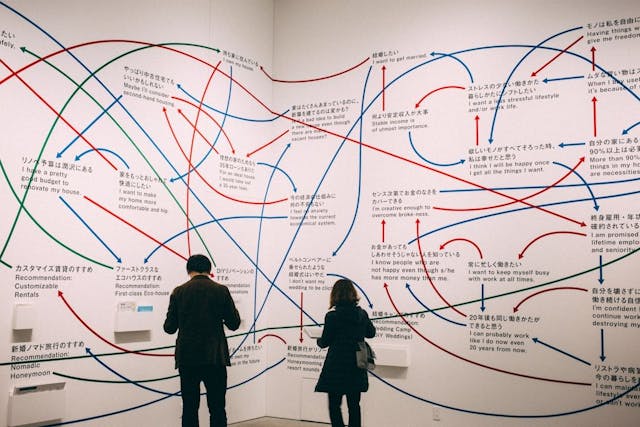 持ち家に住んでいる
I own my house.
やっぱり中古住宅でも
いいかもしれない
Maybe I'll consider
second-hand housing.
リノベ予算は潤沢にある
I have a pretty
good budget to
renovate my house.
家をもっとおしゃれで
快適にしたい
I want to make
my home more
comfortable and hip.
家はたくさんあまっているのに、
新築を建てるのは変かも?
a bad idea to build
a new house even though
there are
vacant houses?
理想の家のためなら
35年ローンもありだ
For an ideal house,
I would take out
a 35-year loan.
今の経済の仕組みに
何の不安もない
I feel no anxiety
towards the current
economical system.
カスタマイズ賃貸のすすめ
Recommendation:
Customizable
Rentals
ファーストクラスな
エコハウスのすすめ
Recommendation:
First-class Eco-house
DIYリノベーションの
新婚ノマド旅行のすすめ
Recommendation:
Nomadic
Honeymoon
ヘルトコンベアーに
乗せられたような
結婚式はいやだ
I don't want my
wedding to be
結婚したい
I want to get married.
何より安定収入が大事
Stable income is
of utmost importance.
ストレスの少ない働きかた
暮らしかたにシフトしたい
I want a less stressful lifestyle
and/or work life.
欲しいモノがすべてそろった時、
私は幸せだと思う
I think I will be happy once
I get all the things I want.
センス次第でお金のなさを
カバーできる
I'm creative enough to
overcome broke-ness.
お金があっても
しあわせそうじゃない人を知っている
I know people who are
not happy even though s/he
has more money than me.
常に忙しく働きたい
I want to keep myself busy
with work at all times.
20年後も同じ働きかたが
できると思う
I can probably work
like I do now even
20 years from now.
Recommendation:
Wedding Camp
(DIY Weddings)
モノは私を自由に
Having things w
give me freedom
ムダな買い物はス
When I buy usele
it's because of s
自分の家にある
90%以上は必要
More than 90%
things in my ho
are necessities
終身雇用・年功
確約されている
I am promised
lifetime employ
and seniority
自分を壊さずに
働き続ける自
I'm confident I
continue work
destroying m
リストラや病
今の暮らしを
I can maintai
lifestyle even
or can't work